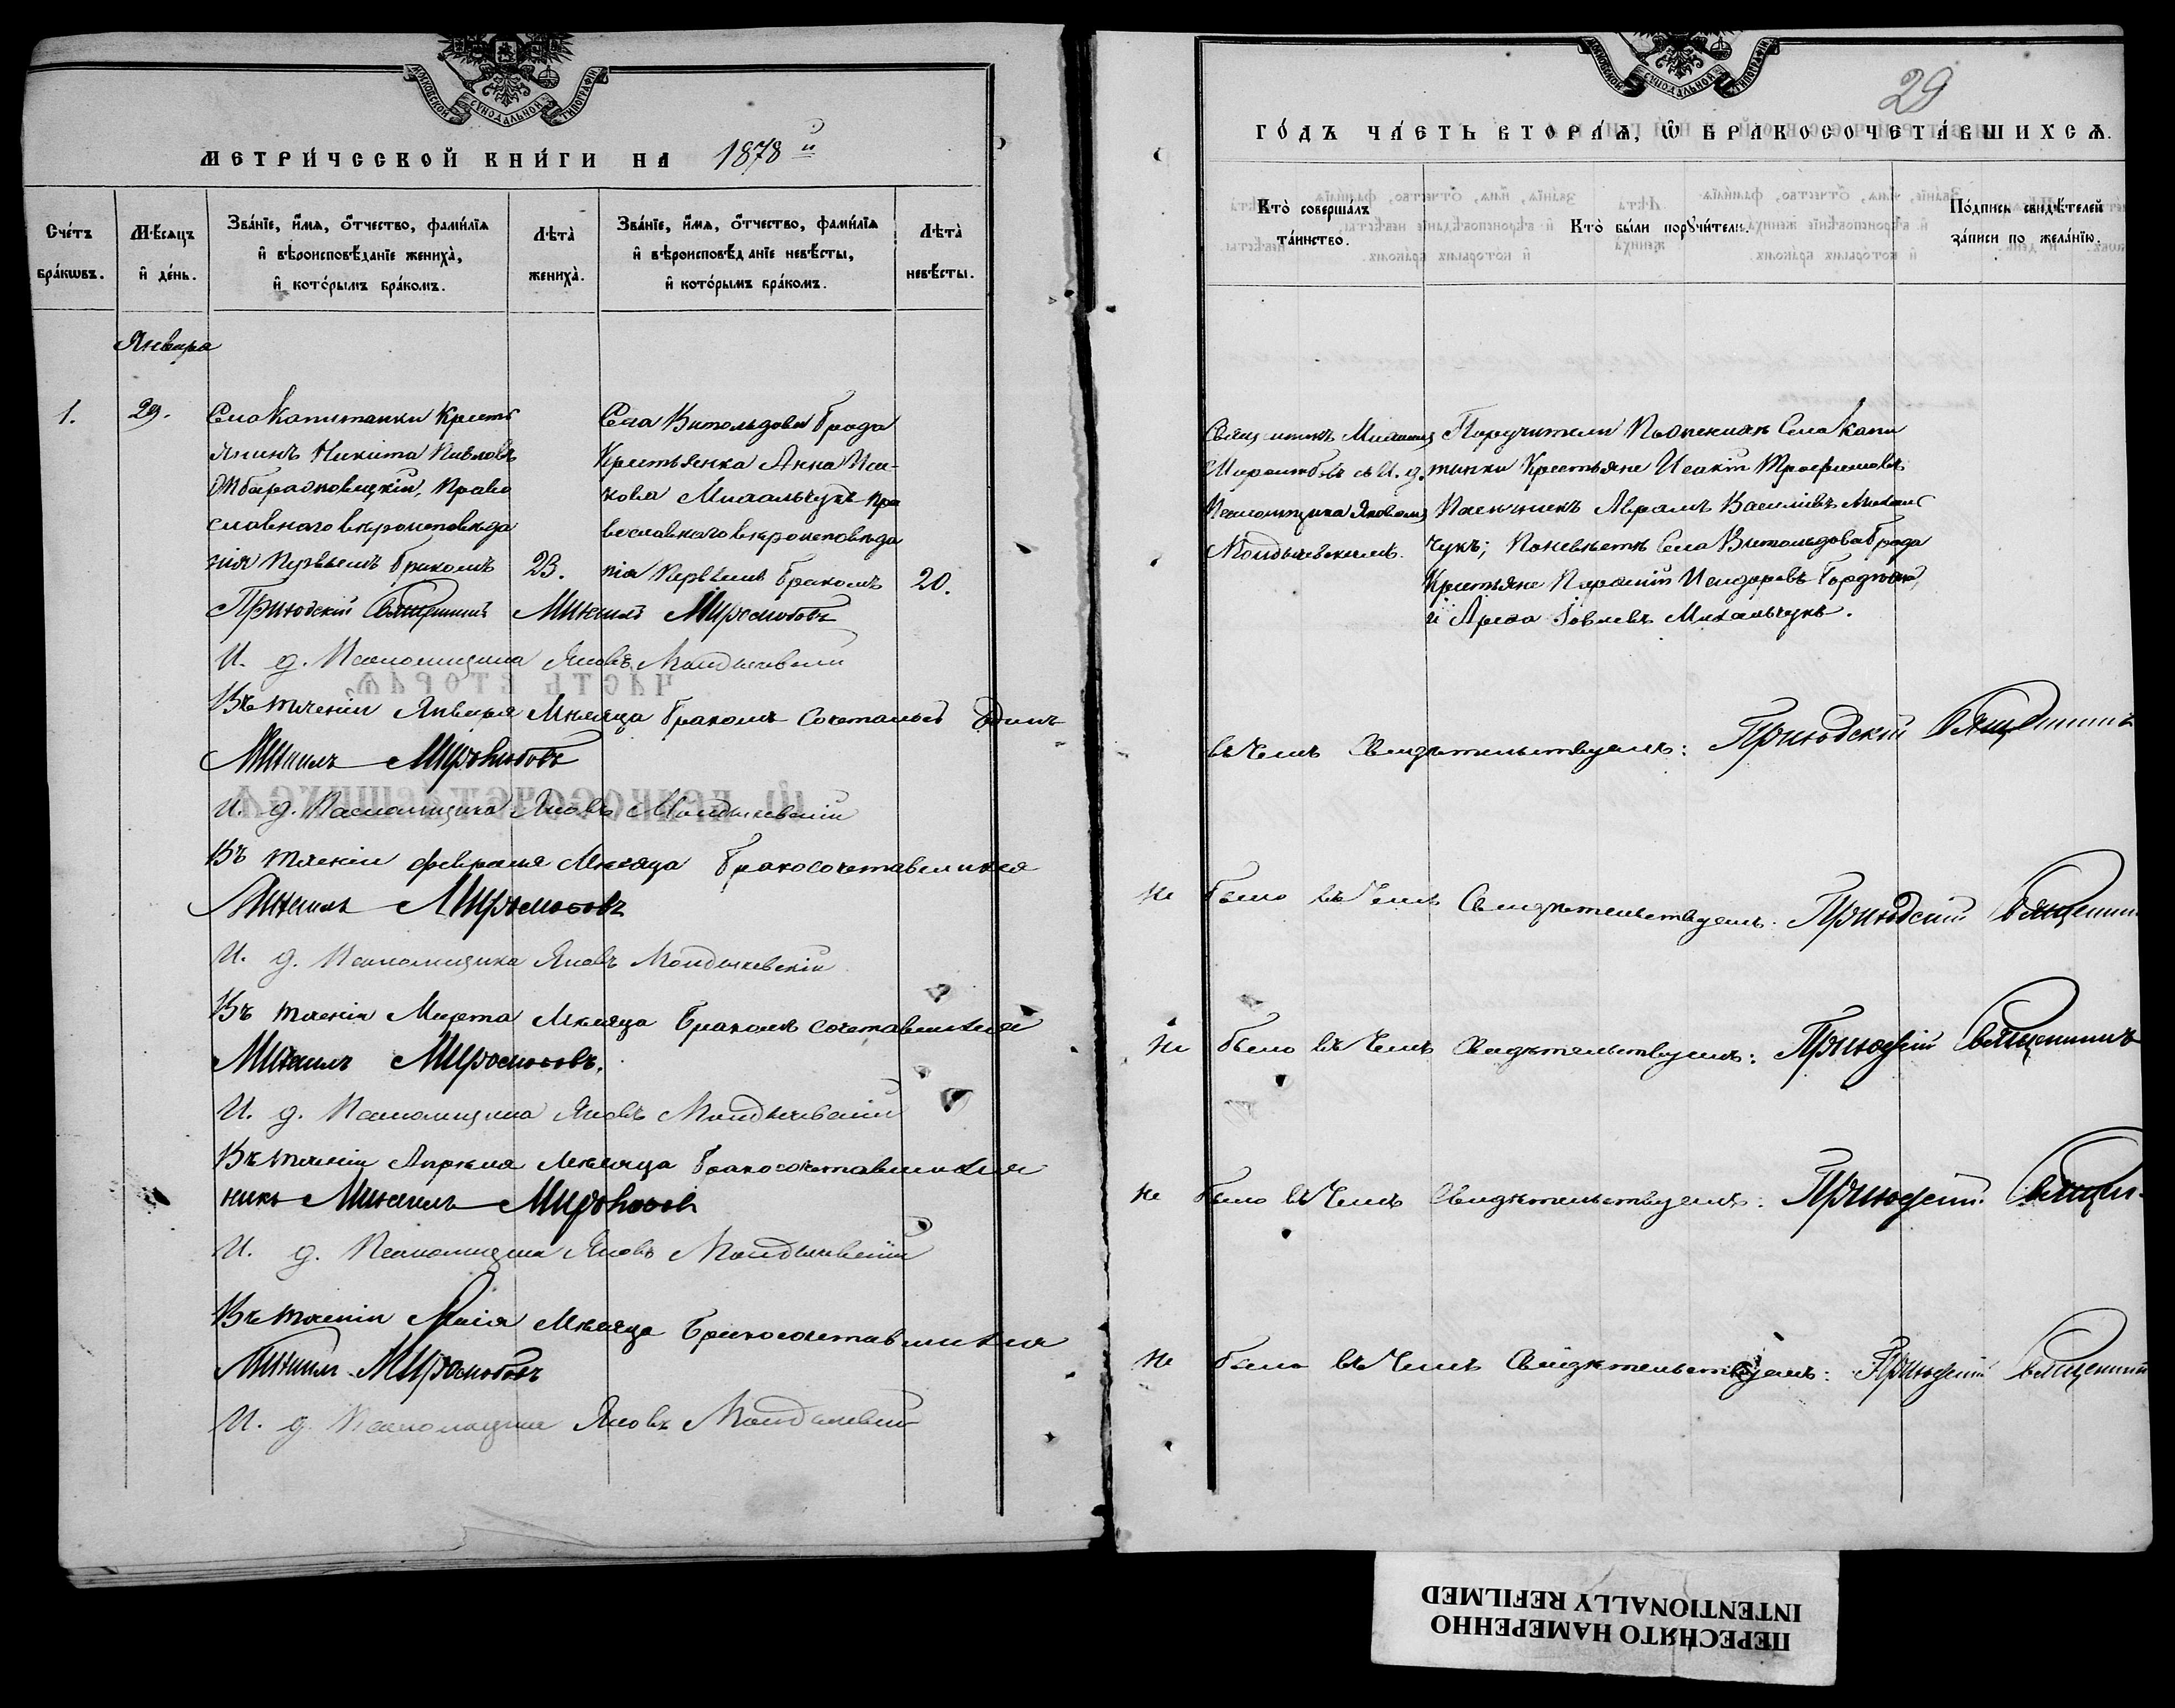 МОСКОВСКОЙ СѴНОДАЛЬНОЙ ТИПОГРАФІИ
МЕТРИ́ЧЕСКОЙ КНИ́ГИ НА 1878й
Сче́тъ бра́кѡвъ.
Мѣ́сяцъ и҆ де́нь.
Зва́нїе, и҆́мѧ, ѻ҆́тчество, фами́лїѧ
и҆ вѣроисповѣ́данїе жениха̀,
и҆ кото́рымъ бра́комъ.
Лѣта̀ жениха̀.
Зва́нїе, и҆́мѧ, ѻ҆́тчество, фами́лїѧ
и҆ вѣроисповѣ́данїе невѣ́сты,
и҆ кото́рымъ бра́комъ.
Лѣта̀ невѣ́сты.
Января
1.
29.
Села Капитанки Кресть
янинъ Никита Павловъ
Право
славнаго вѣроисповѣда
нія первымъ бракомъ
23.
Села Витольдова Брода
Крестьянка Анна Иса-
кова Михальчукъ пра
вославнаго вѣроисповѣда
нія первымъ бракомъ
20.
Приходскій Священникъ Михаилъ
И. д. Псаломщика Яковъ
Въ теченіи Января Мѣсяца бракомъ Сочетались Одинъ
Михаилъ
И. д. Псаломщика Яковъ
Въ теченіи Февраля Мѣсяца бракосочетавшихся
Михаилъ
И. д. Псаломщика Яковъ
Въ теченіи Марта Мѣсяца бракомъ сочетавшихся
Михаилъ
И. д. Псаломщика Яковъ
Въ теченіи Апрѣля Мѣсяца бракосочетавшихся
никъ Михаилъ
И. д. Псаломщика Яковъ
Въ теченіи Маія Мѣсяца бракосочетавшихся
Михаилъ
И. д. Псаломщика Яковъ
МОСКОВСКОЙ СѴНОДАЛЬНОЙ ТИПОГРАФІИ
29
ГО́ДЪ ЧА́СТЬ ВТОРА́Ѧ, Ѡ҆ БРАКОСОЧЕТА́ВШИХСѦ.
Кто̀ соверша́лъ
та́инство.
Кто̀ бы́ли порꙋчи́тели.
По́дпись свидѣ́телей
за́писи по жела́нїю.
Священникъ Михаилъ
съ И. д.
Псаломщика Яковомъ
Поручители По женихѣ Села Капи
танки Крестьяне Исакій Трофимовъ
Пасичникъ Аврамъ Василіевъ Михаль
чукъ; По невѣстѣ Села Витольдова Брода
Крестьяне Исидоровъ
и Іовлевъ Михальчукъ.
въ Чемъ Свидѣтельствуемъ: Приходскій Священникъ
не было въ Чемъ Свидѣтельствуемъ: Приходскій Священникъ
не было въ Чемъ Свидѣтельствуемъ: Приходскій Священникъ
не было въ Чемъ Свидѣтельствуемъ: Приходскій Священ-
не было въ Чемъ Свидѣтельствуемъ: Приходскій Священник
ПЕРЕСНЯТО НАМЕРЕННО
INTENTIONALLY REFILMED